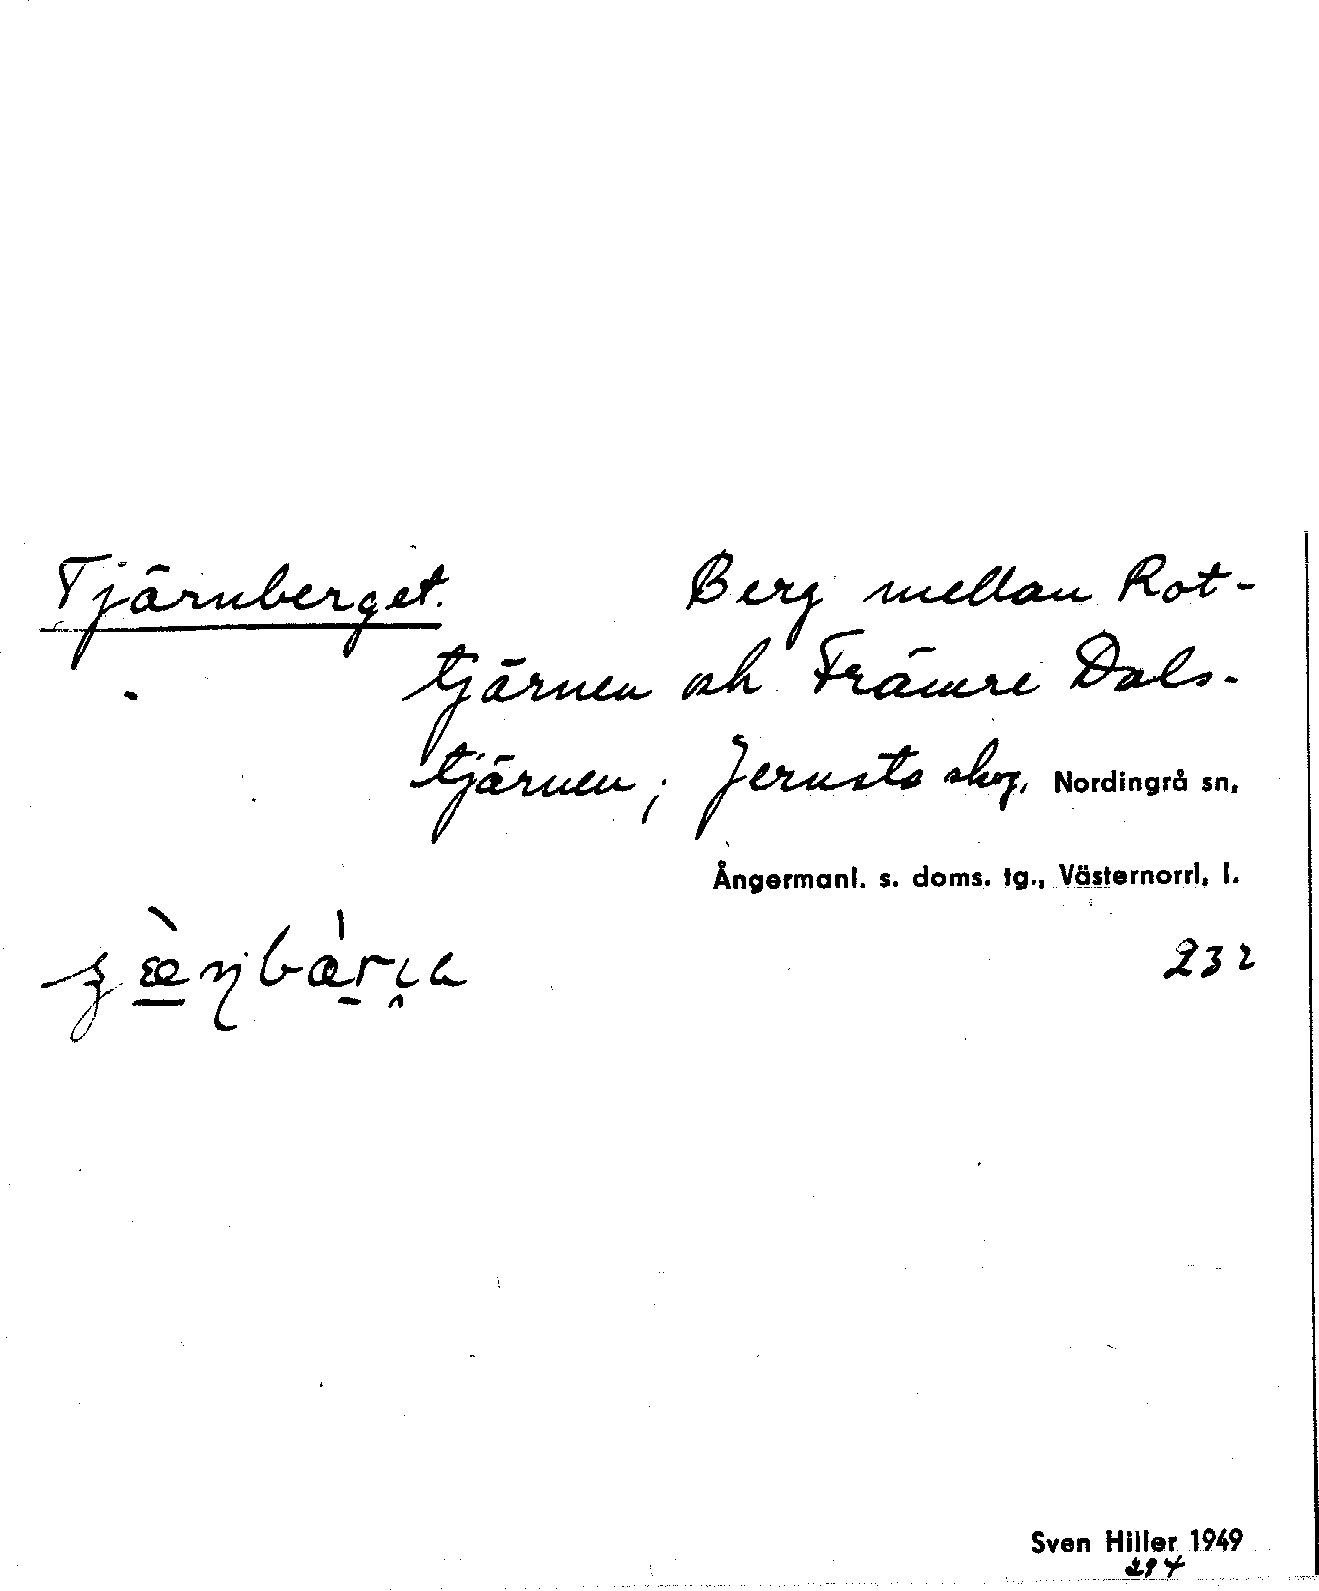 Tjärnberget. Berg mellan Rot-
tjärnen och Främre Dals-
tjärnen; Jerusta skog, Nordingrå sn,
Ångermanl. s. doms. tg., Västernorrl. l.
232
Sven Hiller 1949
294